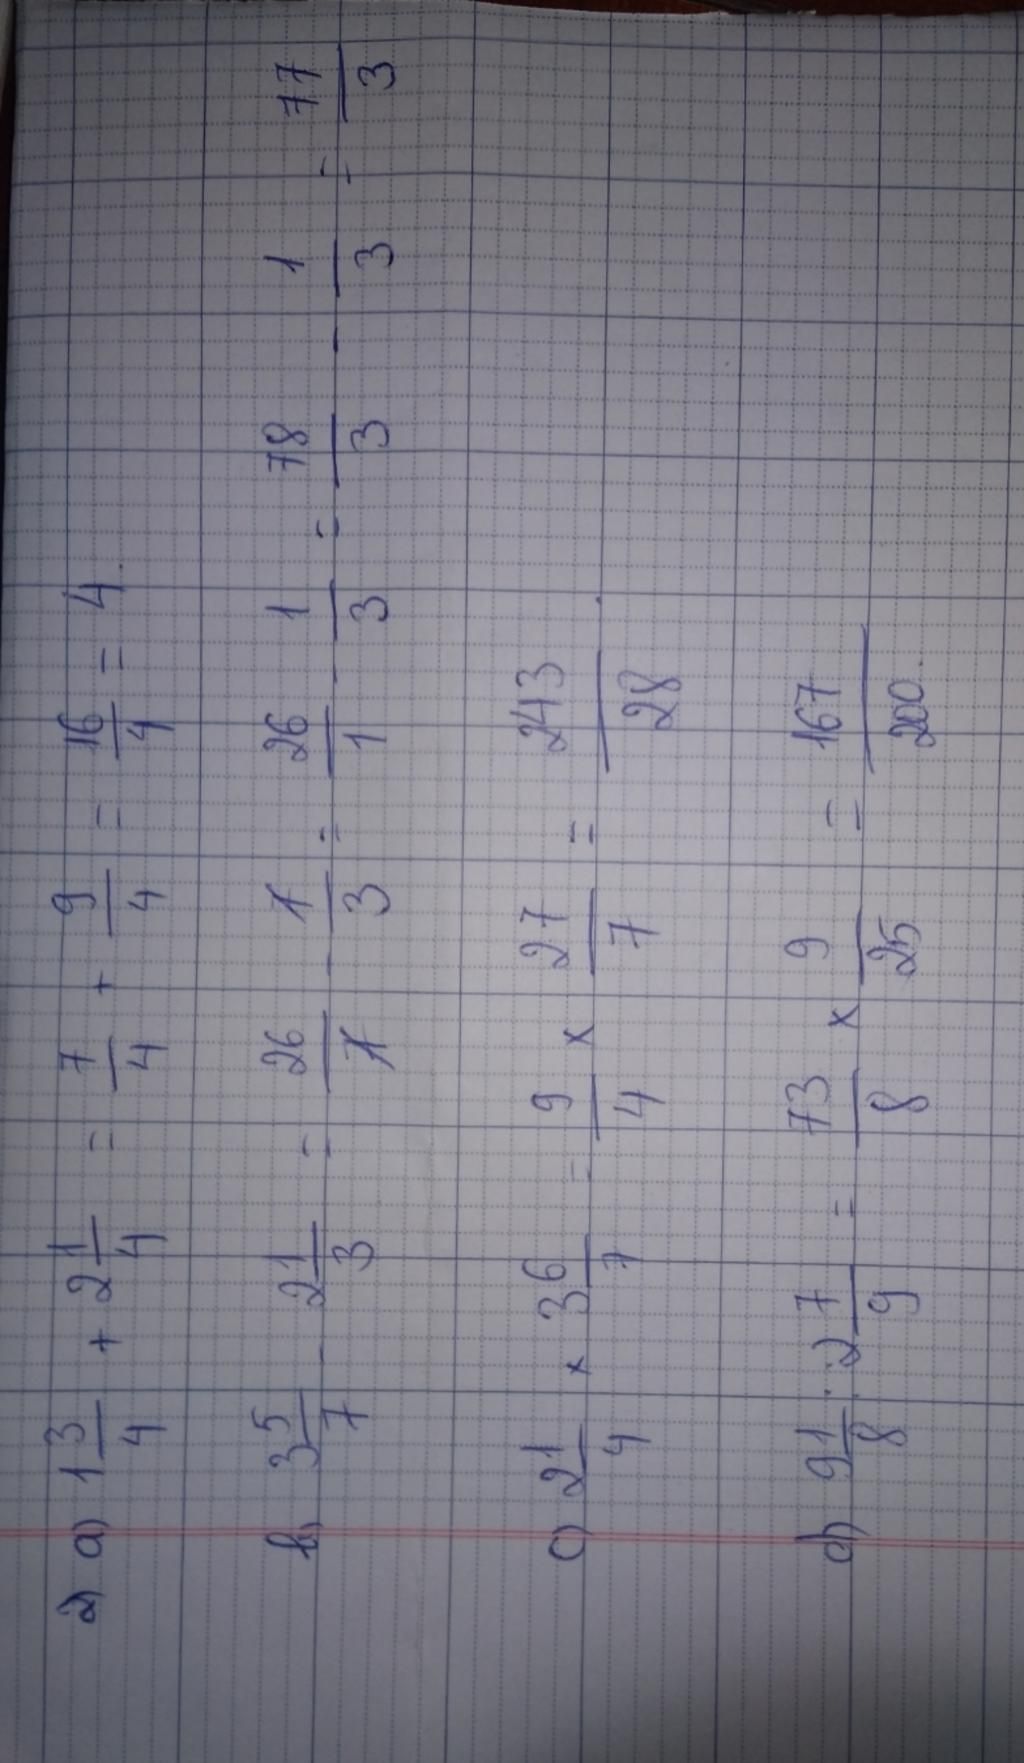 2) a) 1 3/4 + 2 1/4 = 7/4 + 9/4 = 16/4 = 4.
b) 3 5/7 - 2 1/3 = 26/7 - 7/3 = 26/1 - 1/3 = 78/3 - 1/3 = 77/3
c) 2 1/4 x 3 6/7 = 9/4 x 27/7 = 243/28.
d) 9 1/8 : 2 7/9 = 73/8 x 9/25 = 167/200.